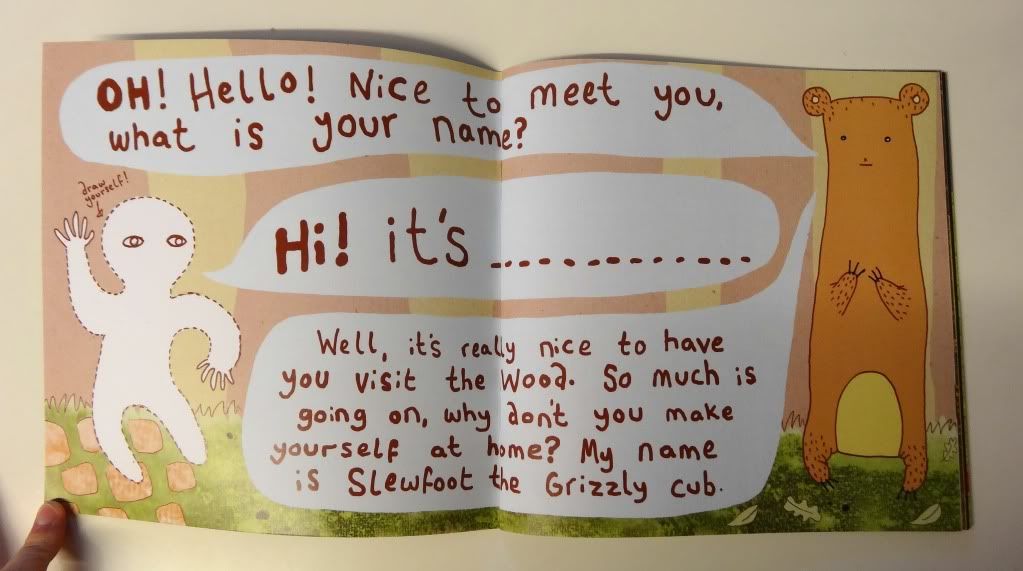 OH! Hello! Nice to meet you,
what is your name?
draw
yourself!
Hi! it's .............
Well, it's really nice to have
you visit the Wood. So much is
going on, why don't you make
yourself at home? My name
is Slewfoot the Grizzly cub.